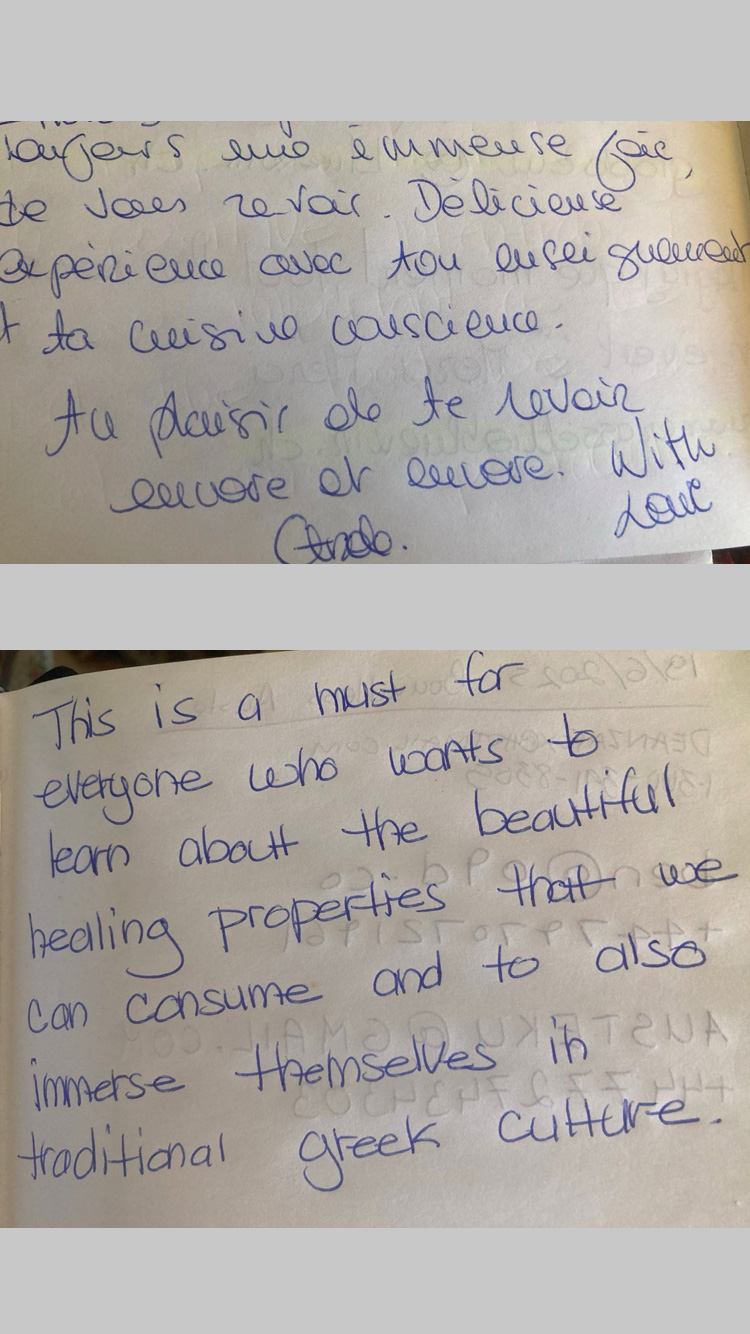 toujours une immense joie,
de vous revoir. Délicieuse
expérience avec ton enseignement
ta cuisine conscience.
Au plaisir de te revoir
encore et encore. With
Love
This is a must for
everyone who wants to
learn about the beautiful
healing properties that we
can consume and to also
immerse themselves in
traditional greek culture.